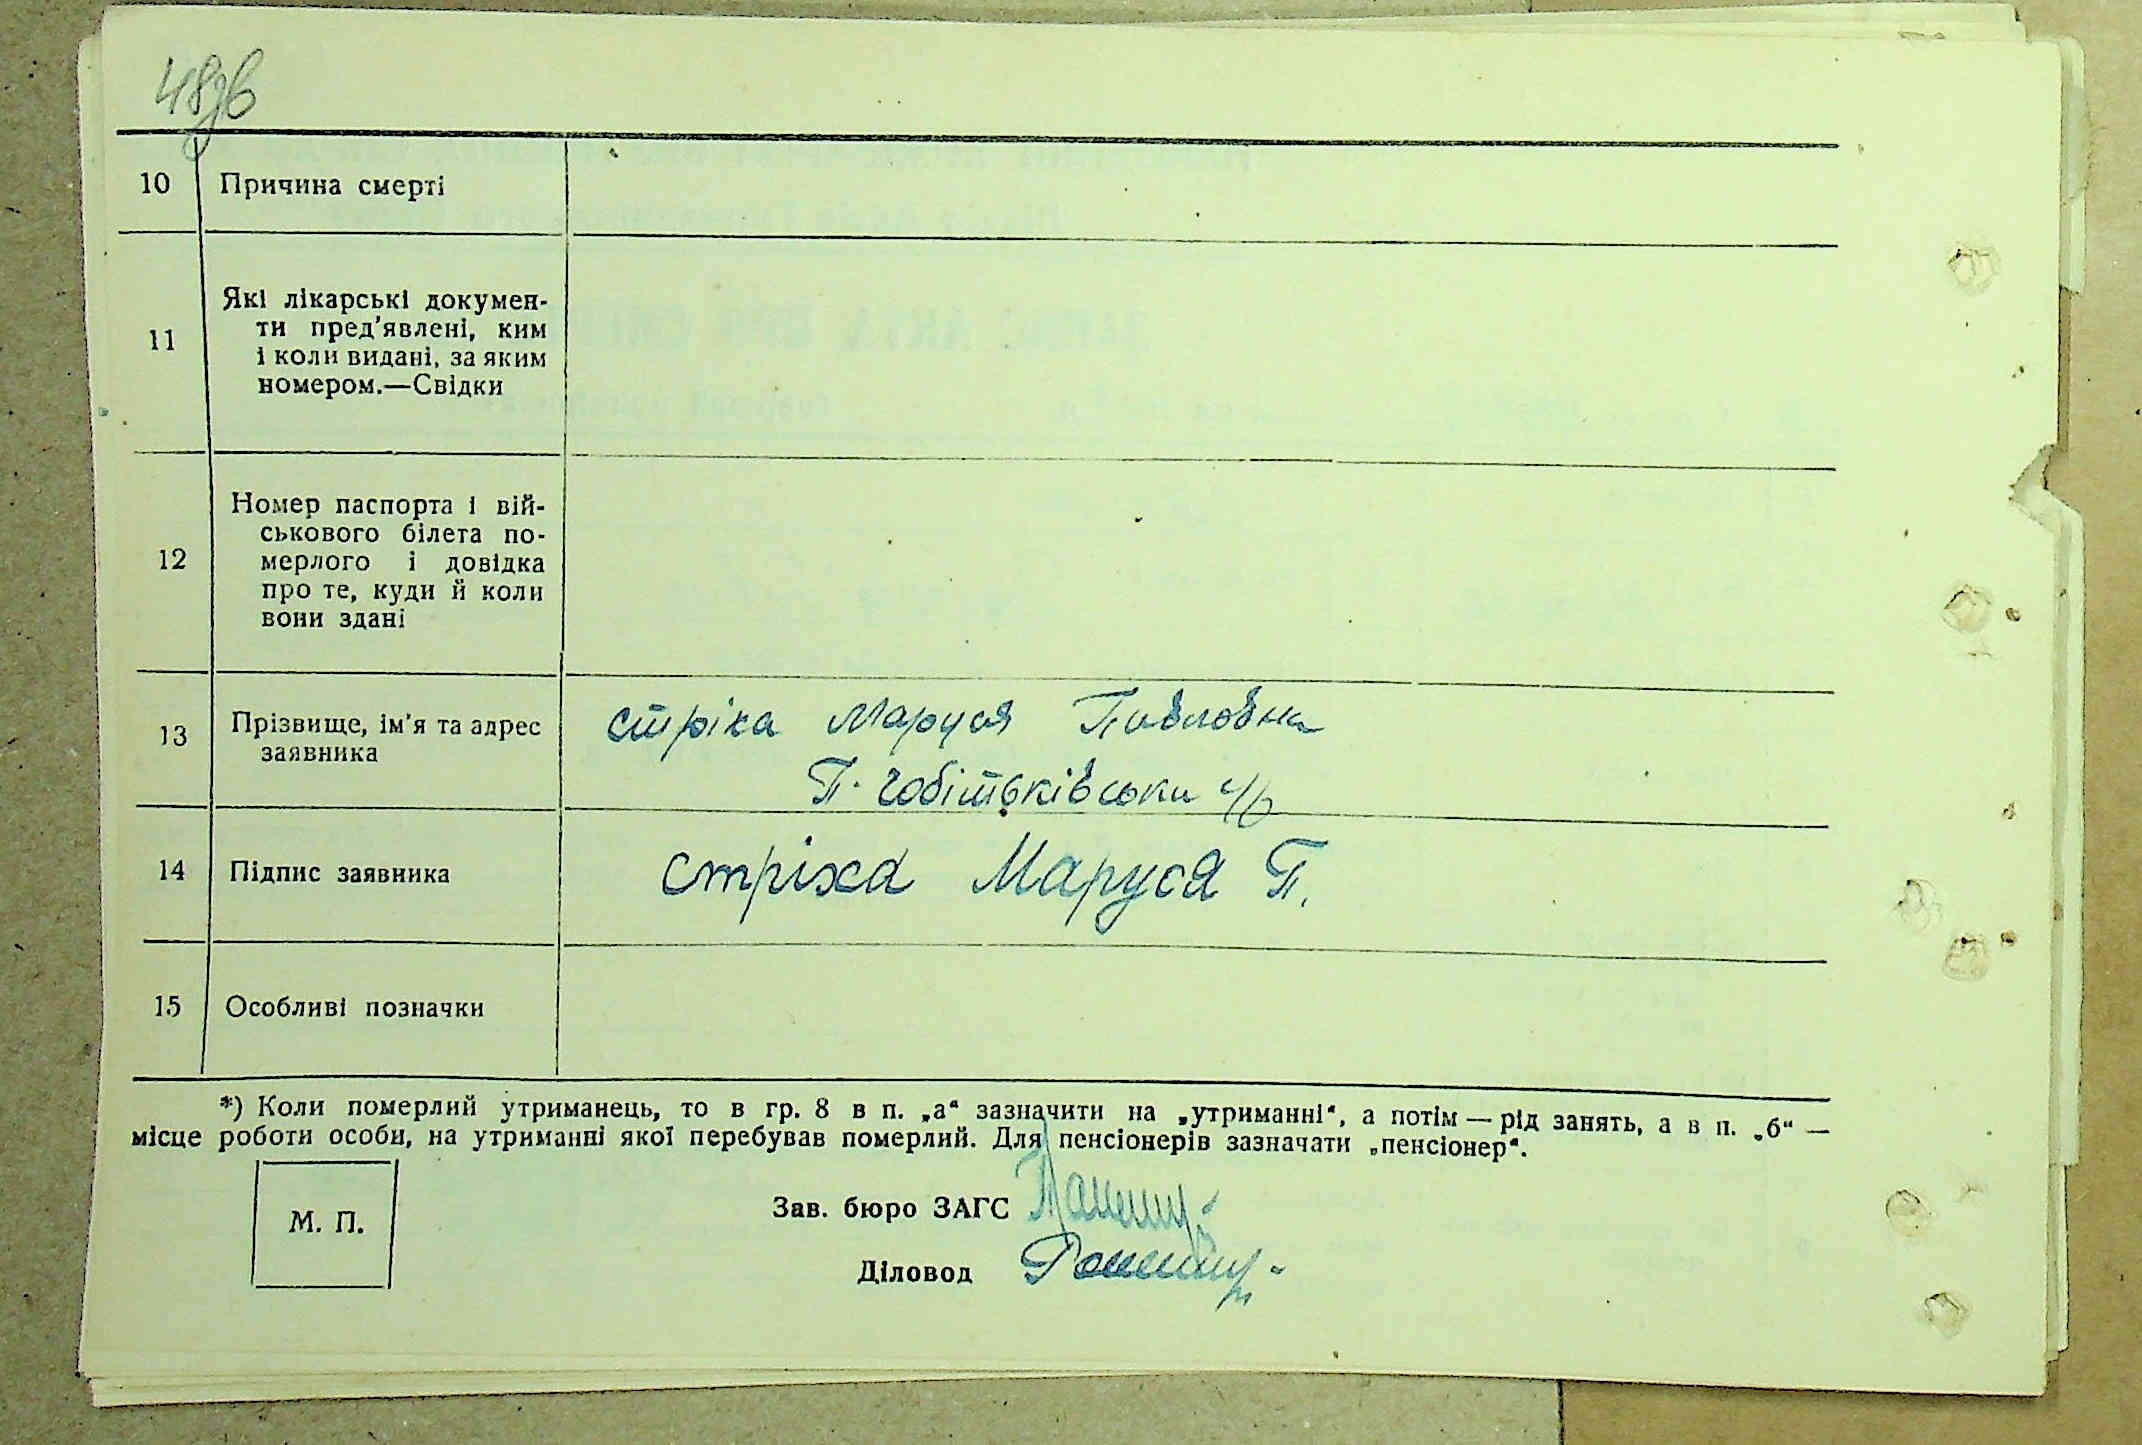 48зв
10 Причина смерті
11 Які лікарські докумен-
ти пред'явлені, ким
і коли видані, за яким
номером.—Свідки
12 Номер паспорта і вій-
ськового білета по-
мерлого і довідка
про те, куди й коли
вони здані
13 Прізвище, ім'я та адрес
заявника
стріха Маруся Павловна
П. Чобітьківська
14 Підпис заявника
стріха Маруся П.
15 Особливі позначки
*) Коли померлий утриманець, то в гр. 8 в п. „а“ зазначити на „утриманні“, а потім — рід занять, а в п. „б“ —
місце роботи особи, на утриманні якої перебував померлий. Для пенсіонерів зазначати „пенсіонер“.
М. П.
Зав. бюро ЗАГС
Діловод